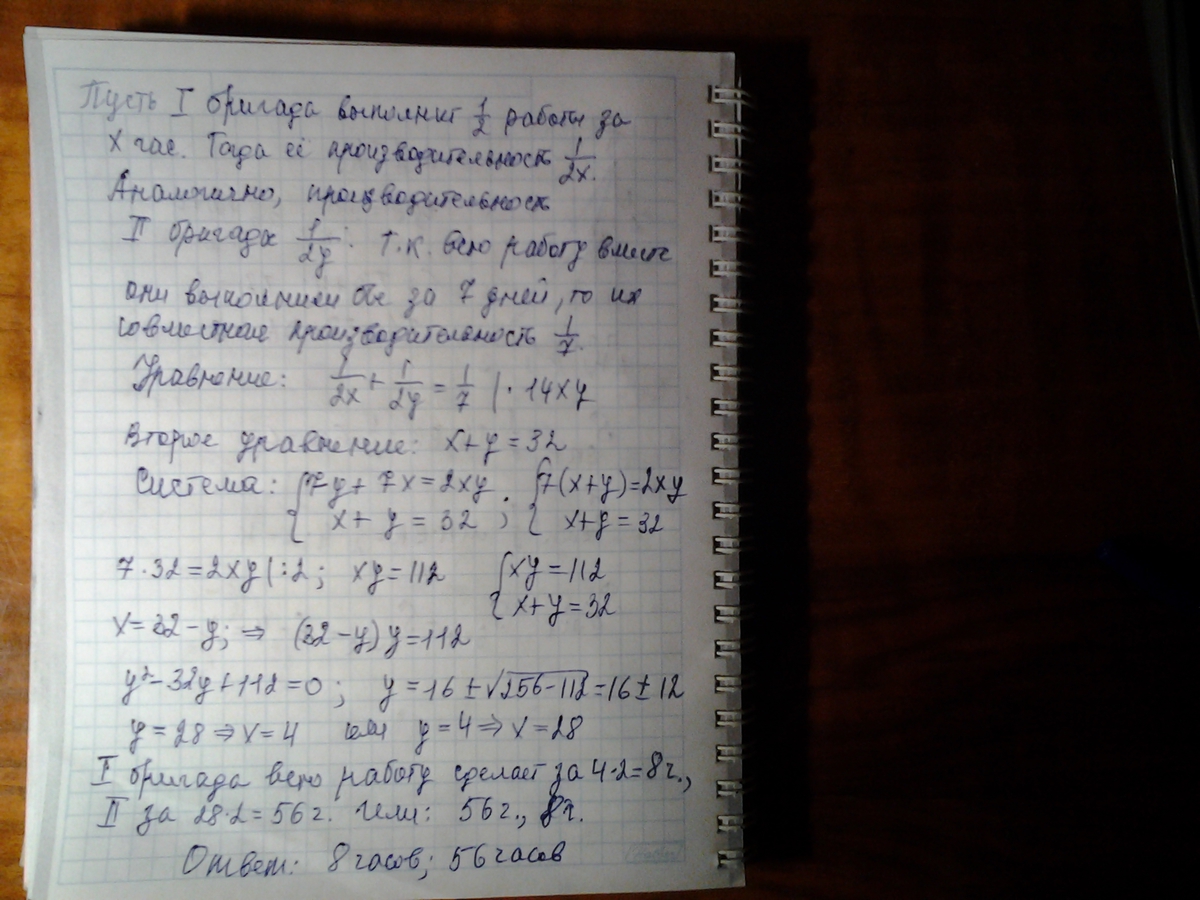 Пусть I бригада выполнит 1/2 работы за
x час. Тогда её производительность 1/2x.
Аналогично, производительность
II бригады 1/2y. Т.к. всю работу вместе
они выполнили бы за 7 дней, то их
совместная производительность 1/7.
Уравнение: 1/2x + 1/2y = 1/7 | · 14xy
Второе уравнение: x+y=32
Система: { 7y+7x=2xy ; { 7(x+y)=2xy
x+y=32 x+y=32
7·32=2xy|:2; xy=112 { xy=112
x+y=32
x=32-y; ⇒ (32-y)y=112
y²-32y+112=0; y=16±√256-112=16±12
y=28⇒x=4 или y=4⇒x=28
I бригада всю работу сделает за 4·2=8ч.,
II за 28·2=56ч. Или: 56ч., 8ч.
Ответ: 8 часов; 56 часов